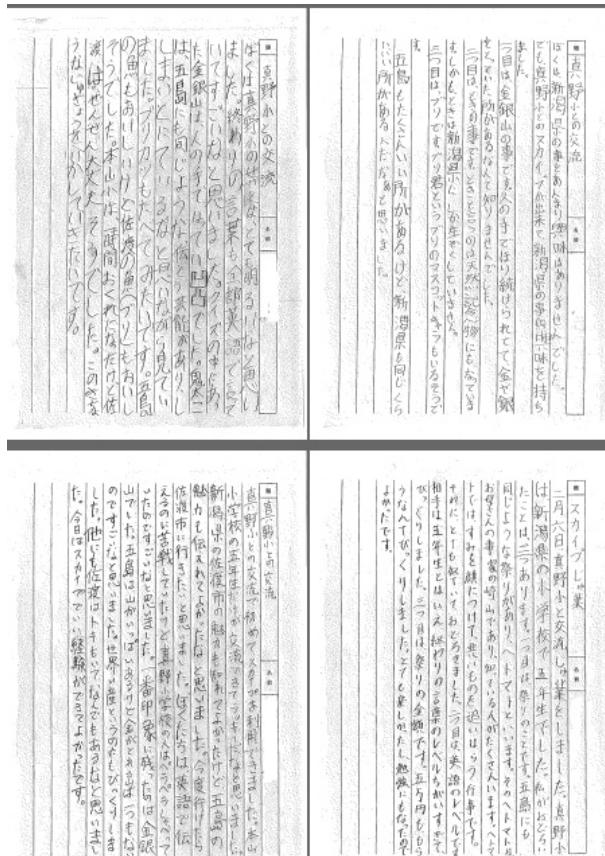 真野小との交流
ぼくは、新潟県の事をあんまり興味はありませんでした。
でも、真野小とのスカイプが出来て新潟県の事に興味を持ち
ました。
一つ目は、金銀山の事です。人の手でほり続けられてて、金や銀
をとっていた所があるなんて知りませんでした。
二つ目は、ときの事です。ときと言うのは天然記念物にもなっていま
す。しかも、ときは新潟県にしか生そくしていません。
三つ目は、ブリです。ブリ君というブリのマスコットキャラもいるそうで
す。
五島もたくさんいい所があるけど、新潟県も同じくら
いいい所があるんだなぁと思いました。
真野小との交流
ぼくは真野小の人たちは、とても明るいなと思い
ました。終わりの言葉も全部英語で言って
いてすごいなと思いました。クイズの中にあっ
た金銀山は、人の手でほっていて凸凹でした。鬼太こ
は、五島にも同じような伝とう芸能があり、し
しまいとにているなと思いながら見てい
ました。ブリカツもたべてみたいです。五島
の魚もおいしいけど佐渡の魚(ブリ)もおいし
そうでした。本山小は、一時間おくれになったけど、佐
渡は、ぜんぜん大丈夫そうでした。このきちょ
うなじゅぎょうをいかしていきたいです。
スカイプじゅ業
二月六日真野小と交流じゅ業をしました。真野小
は新潟県の小学校で、五年生でした。私がおどろい
たことは、三つあります。一つ目は、祭りのことです。五島にも
同じような祭りがあり、ヘトマトといいます。そのヘトマトは
お母さんの実家の崎山であり、知ている人がたくさんいます。ヘトマ
トではすみを顔につけて悪いものを追いはらう行事です。
それにとても似ていて、おどろきました。二つ目は、英語のレベルです。
相手は五年生とはいえ終わりの言葉のレベルがちがいすぎて
びっくりしました。三つ目は、祭りの金額です。五万円ももら
うなんてびっくりしました。とても楽しかたし、勉強にもなったので
よかったです。
真野小との交流
真野小との交流で初めてスカイプを利用できました。本山
小学校の五年生だけが交流できてラッキーだなと思いました。
新潟県の佐渡市の魅力も知れてよかったけど五島の
魅力も伝えれてよかったなと思いました。今度行けたら
佐渡市に行きたいと思いました。ぼくたちは英語で伝
えるのに苦戦していたけど真野小学校の人はペラペラしゃべって
いたのですごいなと思いました。一番印象に残ったのは金銀
山でした。五島は山がいっぱいあるけど金がとれる山は一つもない
のですごいなと思いました。世界い産というのにもびっくりしま
した。他にも佐渡はトキもいて、なんでもあるなと思いまし
た。今日はスカイプでいい経験ができてよかったです。